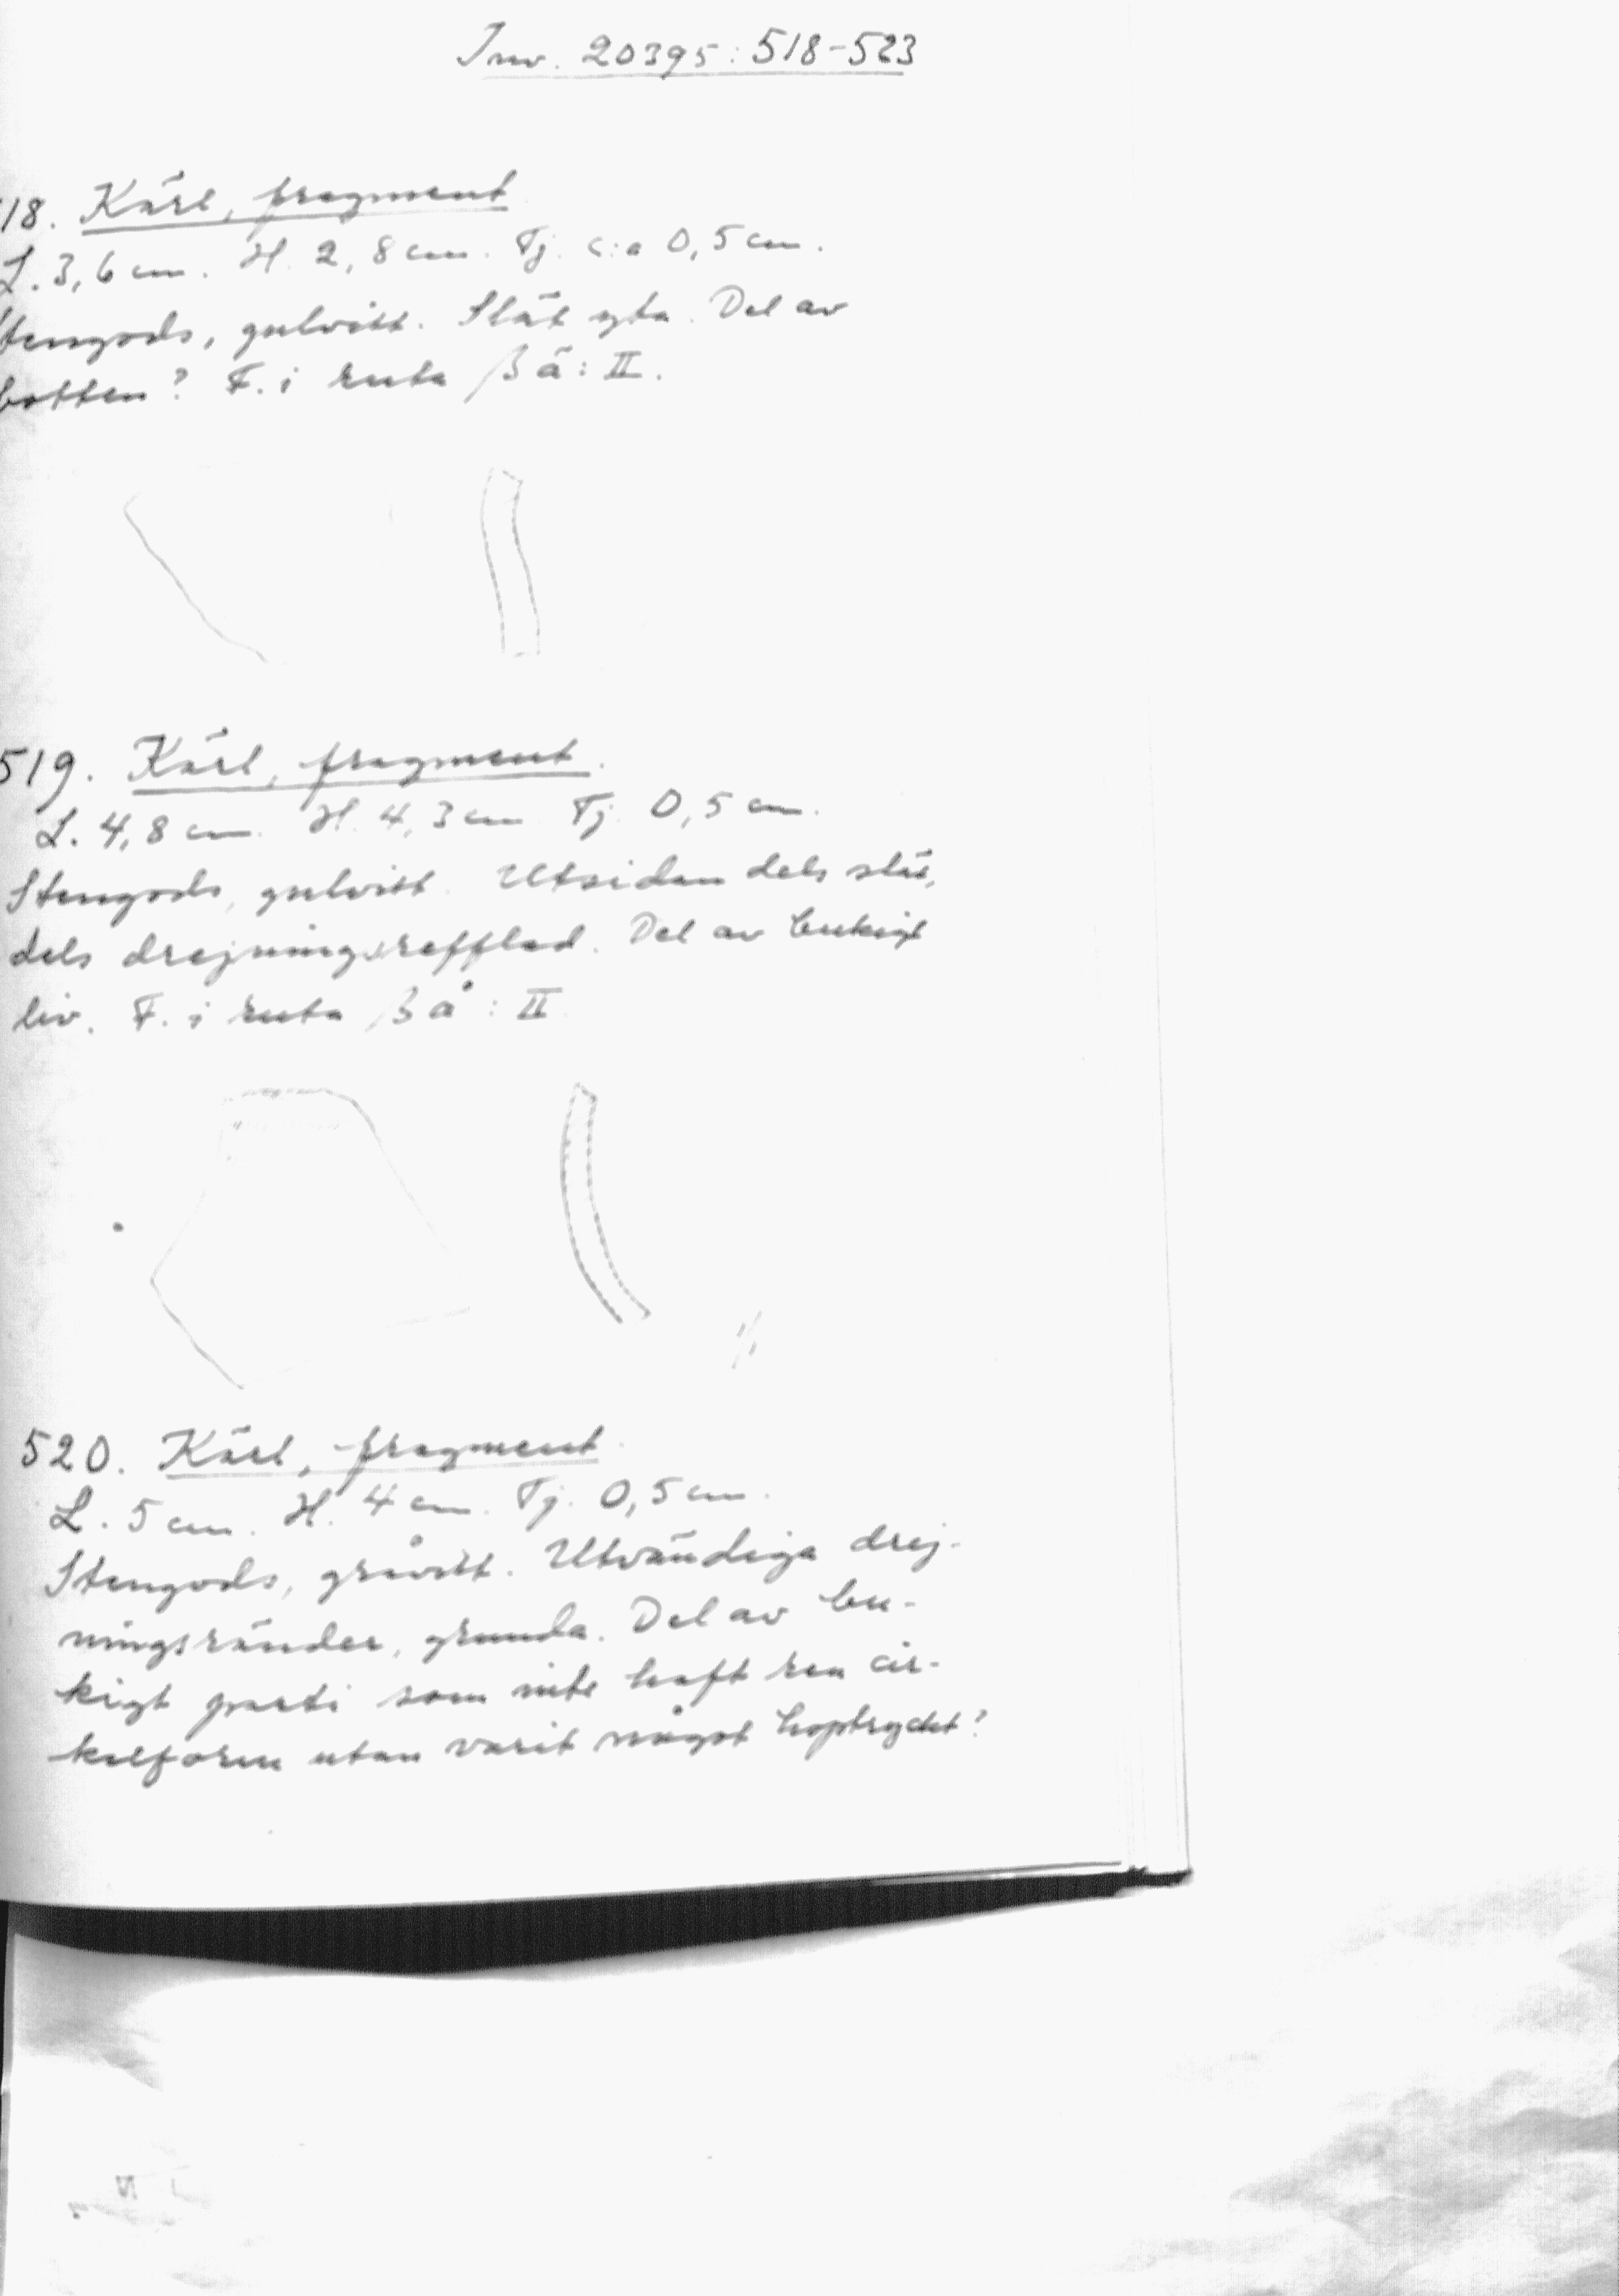 Inv. 20395:518-523
18. Kärl, fragment
L. 3,6 cm. H. 2,8 cm. Tj. c:a 0,5 cm.
Stengods, gulvitt. Slät yta. Del av
botten? F. i ruta ß ä: II.
519. Kärl, fragment.
L. 4,8 cm. H. 4,3 cm Tj. 0,5 cm.
Stengods, gulvitt. Utsidan dels slät,
dels drejningsrefflad. Del av bukigt
liv. F. i ruta ß å: II
520. Kärl, fragment.
L. 5 cm. H. 4 cm. Tj. 0,5 cm.
Stengods, gråvitt. Utvändiga drej-
ningsränder, grunda. Del av bu-
kigt parti som inte haft ren cir-
kelform utan varit något hoptryckt?